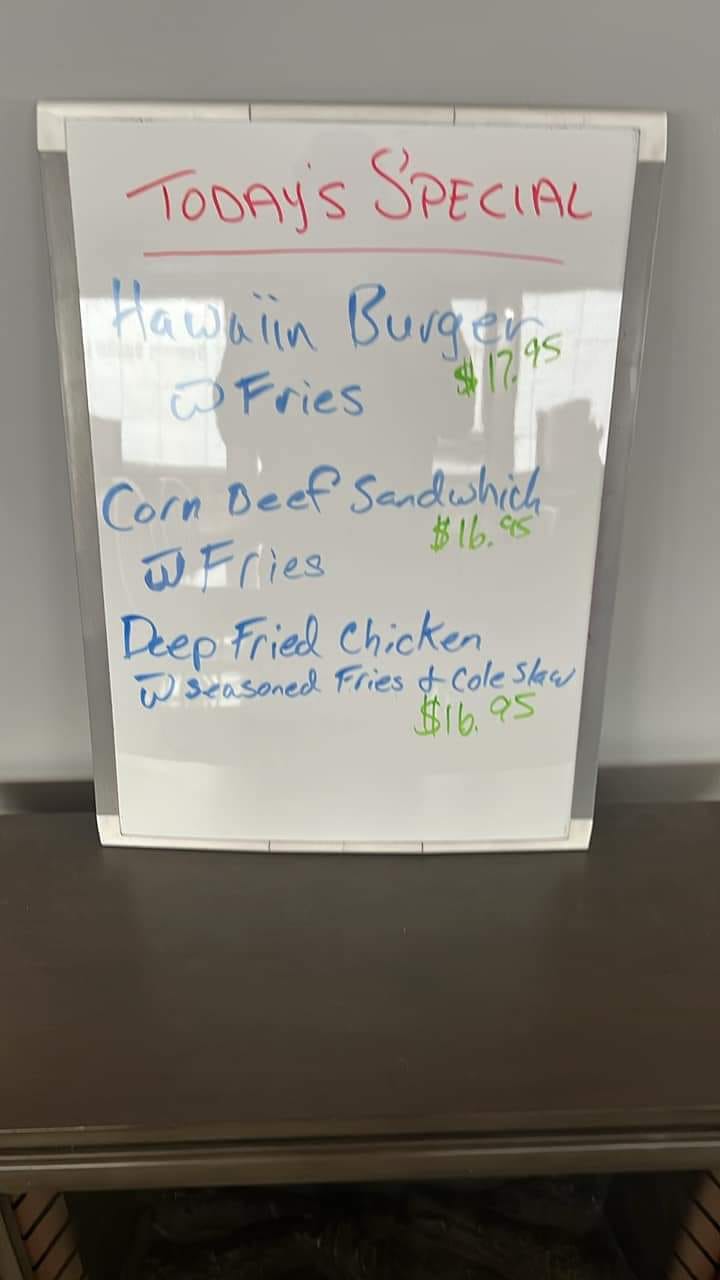 TODAY'S SPECIAL
Hawaiin Burger
$17.95
w Fries
Corn Beef Sandwhich
$16.95
w Fries
Deep Fried Chicken
w seasoned Fries & Cole Slaw
$16.95